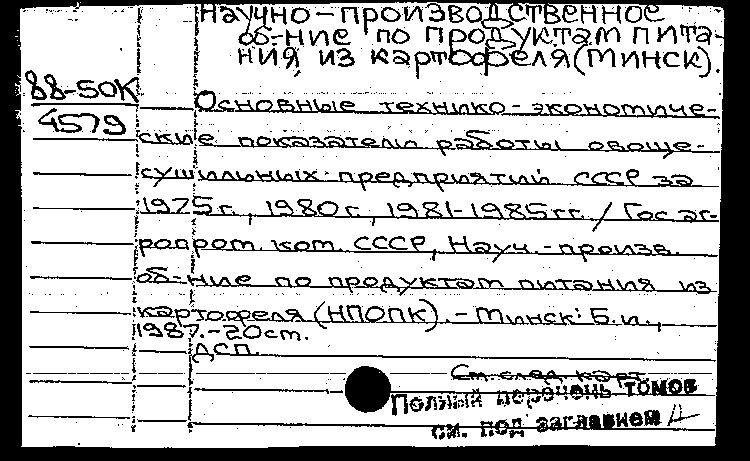 Научно-производственное
об-ние по продуктам пита-
ния из картофеля (Минск).
88-50К
4579
Основные технико-экономиче-
ские показатели работы овоще-
сушильных предприятий СССР за
1975г., 1980г., 1981-1985гг. / Гос аг-
ропром. ком. СССР, Науч.-произв.
об-ние по продуктам питания из
картофеля (НПОПК). - Минск: Б.и.,
1987. - 20 ст.
ДСП.
См. след. карт.
Полный перечень томов
см. под заглавием